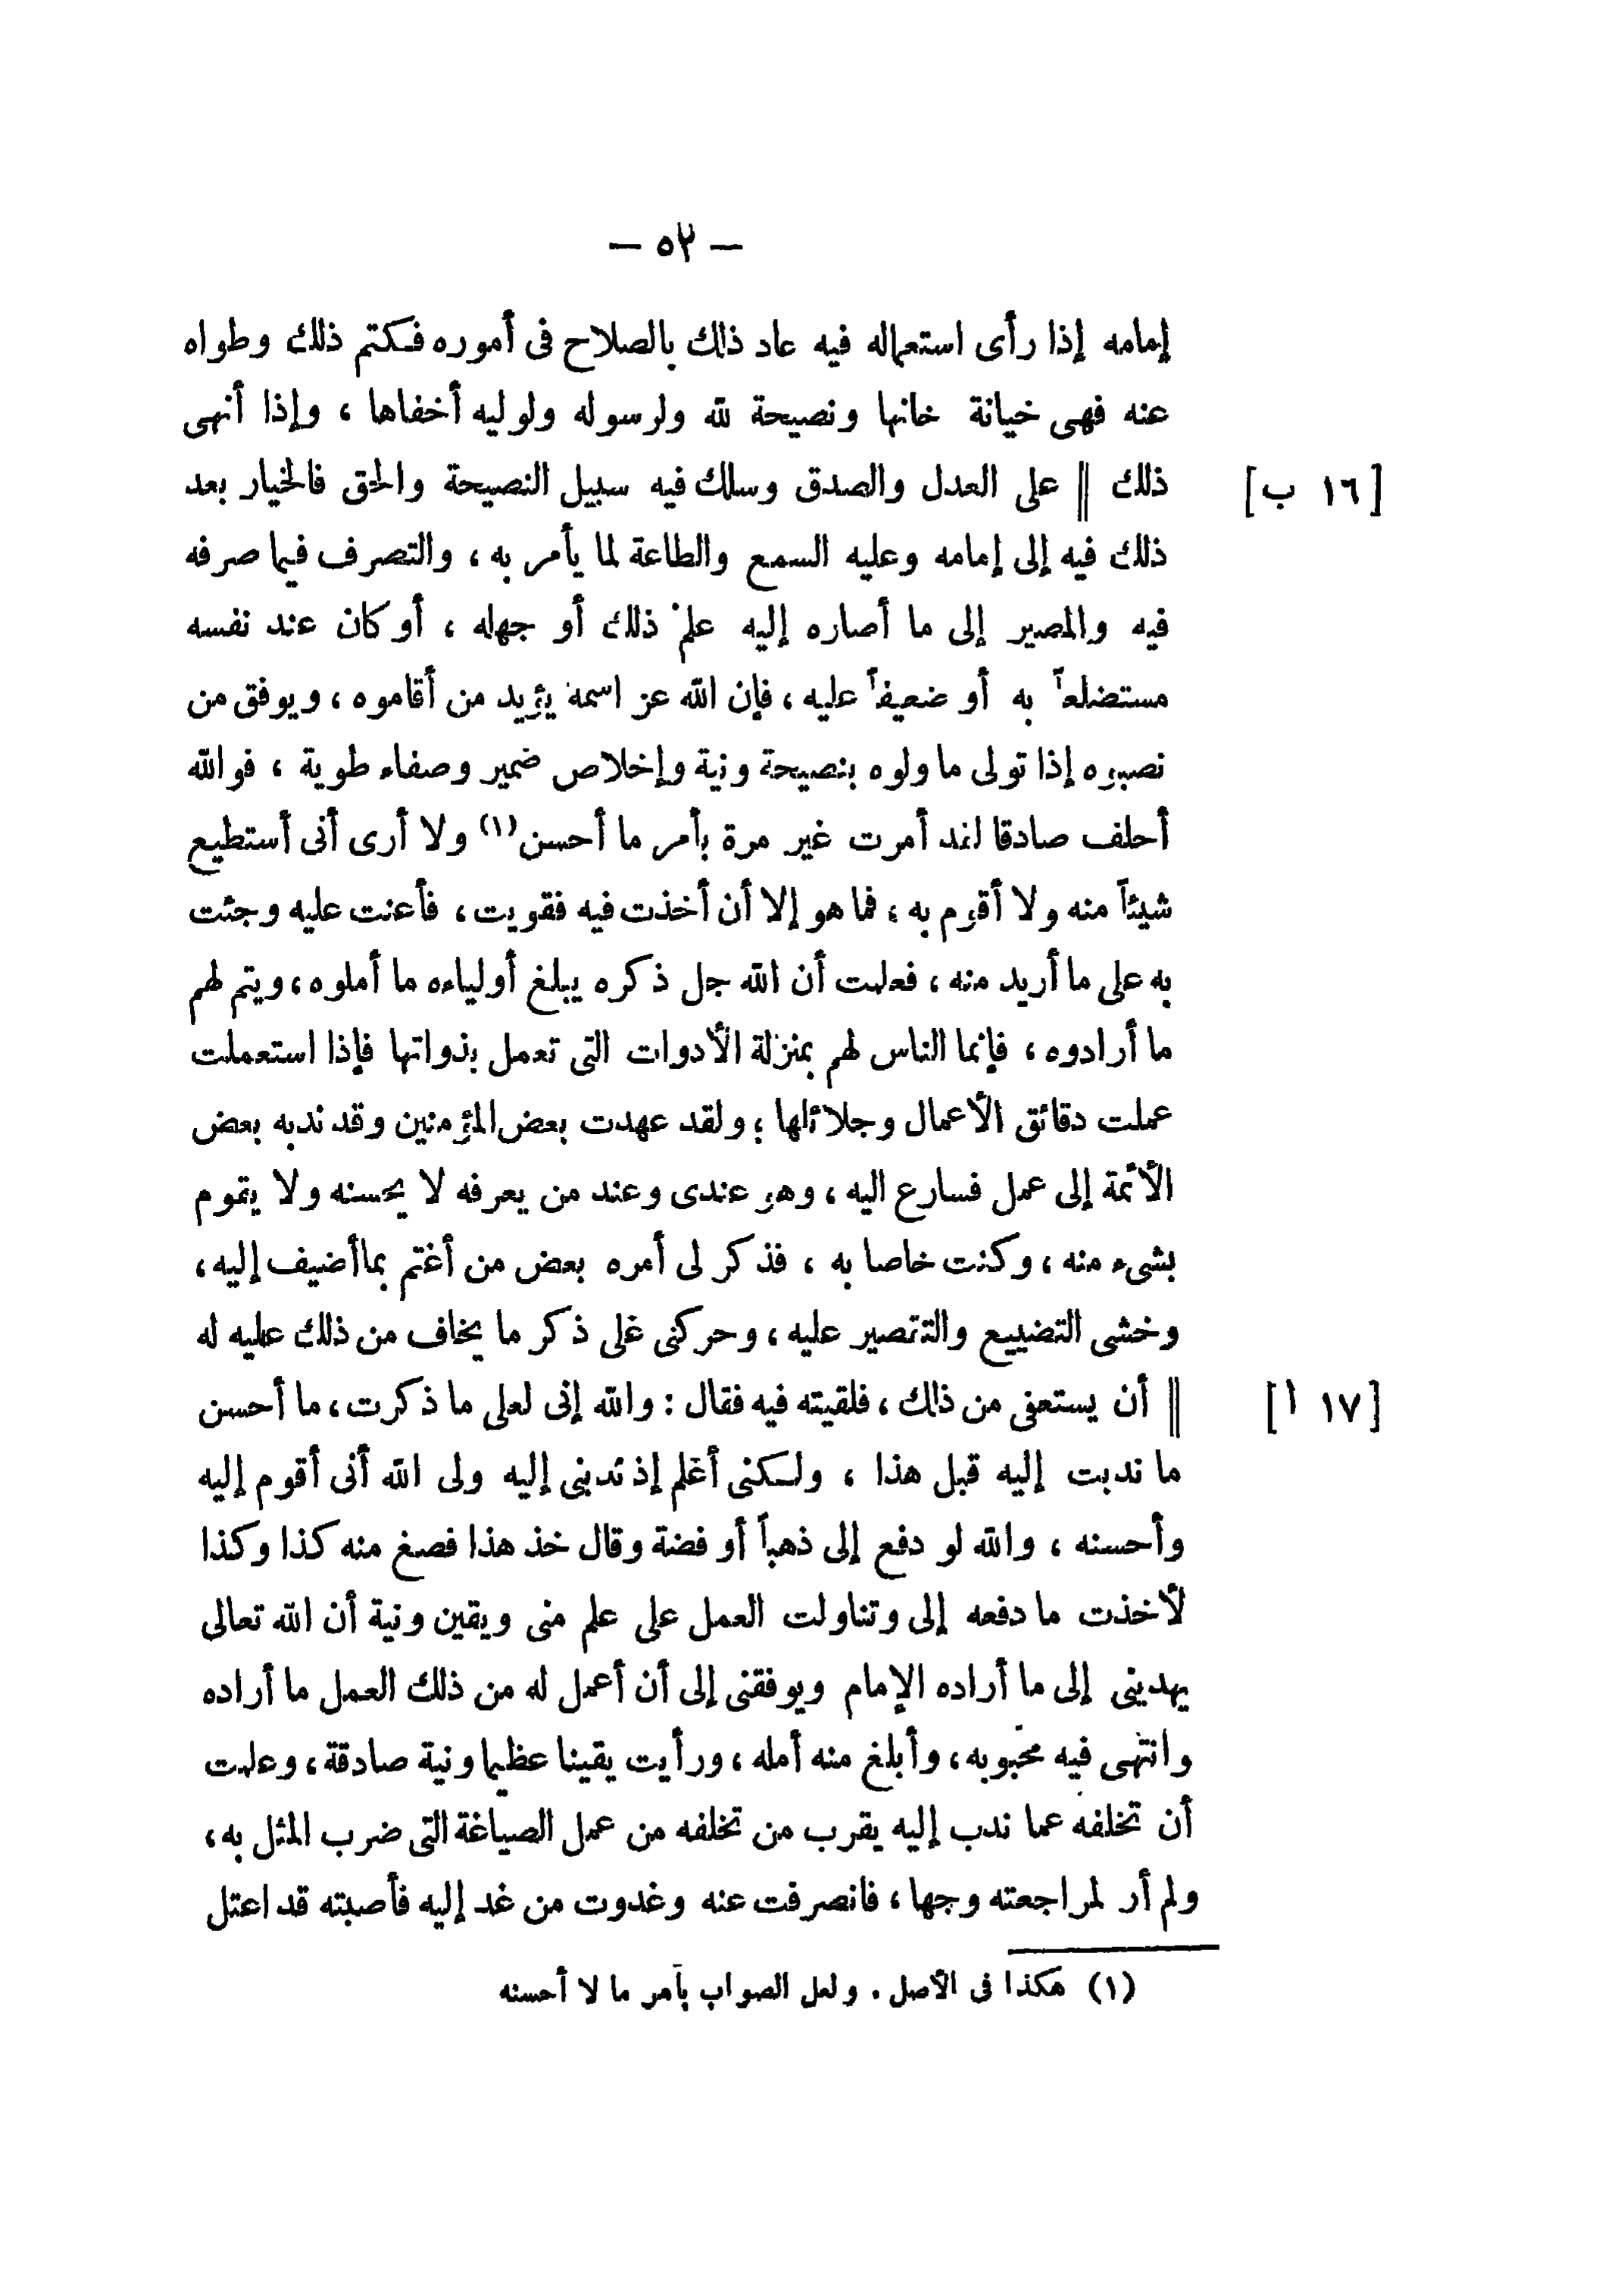 — ٥٢ —
إمامه إذا رأى استعماله فيه عاد ذلك بالصلاح فى أموره فكتم ذلك وطواه
عنه فهى خيانة خانها ونصيحة لله ولرسوله ولوليه أخفاها ، وإذا أنهى
ذلك || على العدل والصدق وسلك فيه سبيل النصيحة والحق فالخيار بعد [١٦ ب]
ذلك فيه إلى إمامه وعليه السمع والطاعة لما يأمر به ، والتصرف فيما صرفه
فيه والمصير إلى ما أصاره إليه علم ذلك أو جهله ، أو كان عند نفسه
مستضلعاً به أو ضعيفاً عليه ، فإن الله عز اسمه يؤيد من أقاموه ، ويوفق من
نصبوه إذا تولى ما ولوه بنصيحة ونية وإخلاص ضمير وصفاء طوية ، فوالله
أحلف صادقا لقد أمرت غير مرة بأمر ما أحسن (١) ولا أرى أنى أستطيع
شيئاً منه ولا أقوم به ، فما هو إلا أن أخذت فيه فقويت ، فأعنت عليه وجئت
به على ما أريد منه ، فعلمت أن الله جل ذكره يبلغ أولياءه ما أملوه ، ويتم لهم
ما أرادوه ، فإنما الناس لهم بمنزلة الأدوات التى تعمل بذواتها فإذا استعملت
عملت دقائق الأعمال وجلائلها ؛ ولقد عهدت بعض المؤمنين وقد ندبه بعض
الأئمة إلى عمل فسارع اليه ، وهو عندى وعند من يعرفه لا يحسنه ولا يقوم
بشىء منه ، وكنت خاصا به ، فذكر لى أمره بعض من أغتم بما أضيف إليه ،
وخشى التضييع والتقصير عليه ، وحركنى على ذكر ما يخاف من ذلك عليه له
|| أن يستعفى من ذلك ، فلقيته فيه فقال : والله إنى لعلى ما ذكرت ، ما أحسن [١٧ أ]
ما ندبت إليه قبل هذا ، ولكنى أعلم إذ ندبنى إليه ولى الله أنى أقوم إليه
وأحسنه ، والله لو دفع إلى ذهباً أو فضة وقال خذ هذا فصغ منه كذا وكذا
لأخذت ما دفعه إلى وتناولت العمل على علم منى ويقين ونية أن الله تعالى
يهدينى إلى ما أراده الإمام ويوفقنى إلى أن أعمل له من ذلك العمل ما أراده
وانتهى فيه محبوبه ، وأبلغ منه أمله ، ورأيت يقينا عظيما ونية صادقة ، وعلمت
أن تخلفه عما ندب إليه يقرب من تخلفه من عمل الصياغة التى ضرب المثل به ،
ولم أر لمراجعته وجها ، فانصرفت عنه وغدوت من غد إليه فأصبته قد اعتل
(١) هكذا فى الأصل . ولعل الصواب بأمر ما لا أحسنه